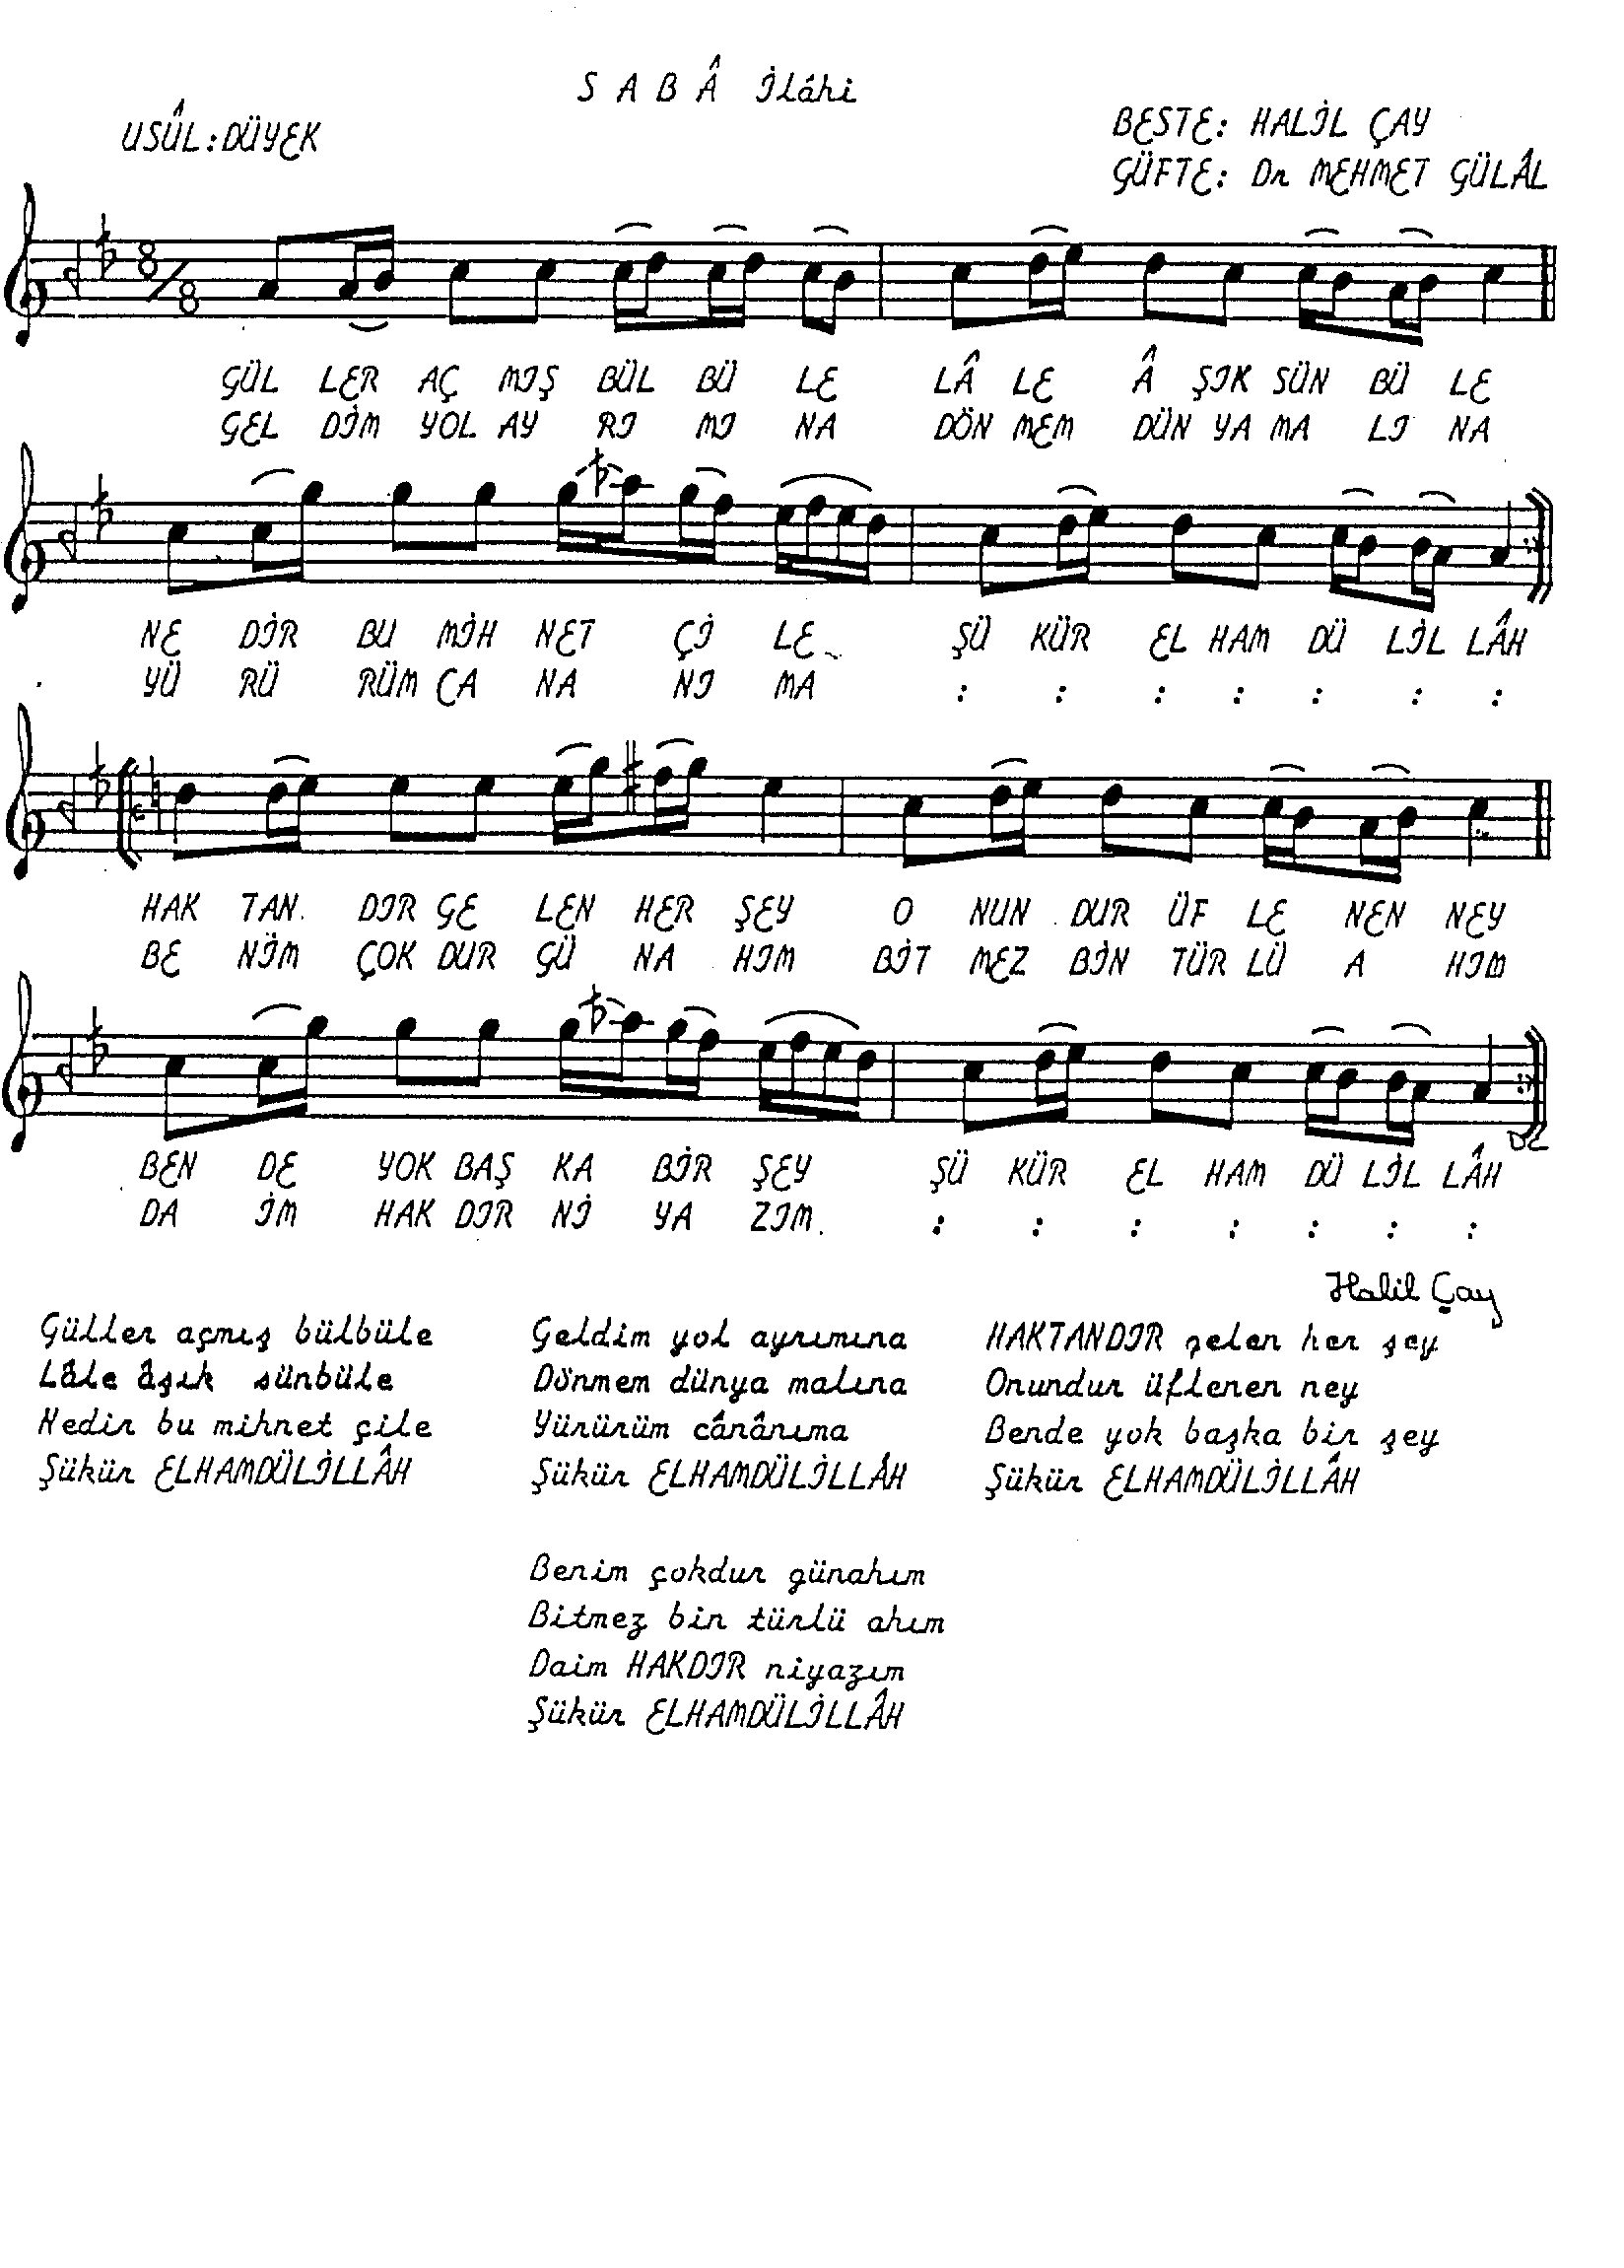 SABÂ İlâhi
USÛL: DÜYEK
BESTE: HALİL ÇAY
GÜFTE: Dr MEHMET GÜLÂL
8/8
GÜL LER AÇ MIŞ BÜL BÜ LE LÂ LE Â ŞIK SÜN BÜ LE
GEL DİM YOL AY RI MI NA DÖN MEM DÜN YA MA LI NA
NE DİR BU MİH NET Çİ LE ŞÜ KÜR EL HAM DÜ LİL LÂH
YÜ RÜ RÜM CA NA NI MA : : : : : : :
HAK TAN DIR GE LEN HER ŞEY O NUN DUR ÜF LE NEN NEY
BE NİM ÇOK DUR GÜ NA HIM BİT MEZ BİN TÜR LÜ A HIM
BEN DE YOK BAŞ KA BİR ŞEY ŞÜ KÜR EL HAM DÜ LİL LÂH
DA İM HAK DIR Nİ YA ZIM : : : : : : :
Halil Çay
Güller açmış bülbüle
Lâle âşık sünbüle
Nedir bu mihnet çile
Şükür ELHAMDÜLİLLÂH
Geldim yol ayrımına
Dönmem dünya malına
Yürürüm cânânıma
Şükür ELHAMDÜLİLLÂH
HAKTANDIR gelen her şey
Onundur üflenen ney
Bende yok başka bir şey
Şükür ELHAMDÜLİLLÂH
Benim çokdur günahım
Bitmez bin türlü ahım
Daim HAKDIR niyazım
Şükür ELHAMDÜLİLLÂH